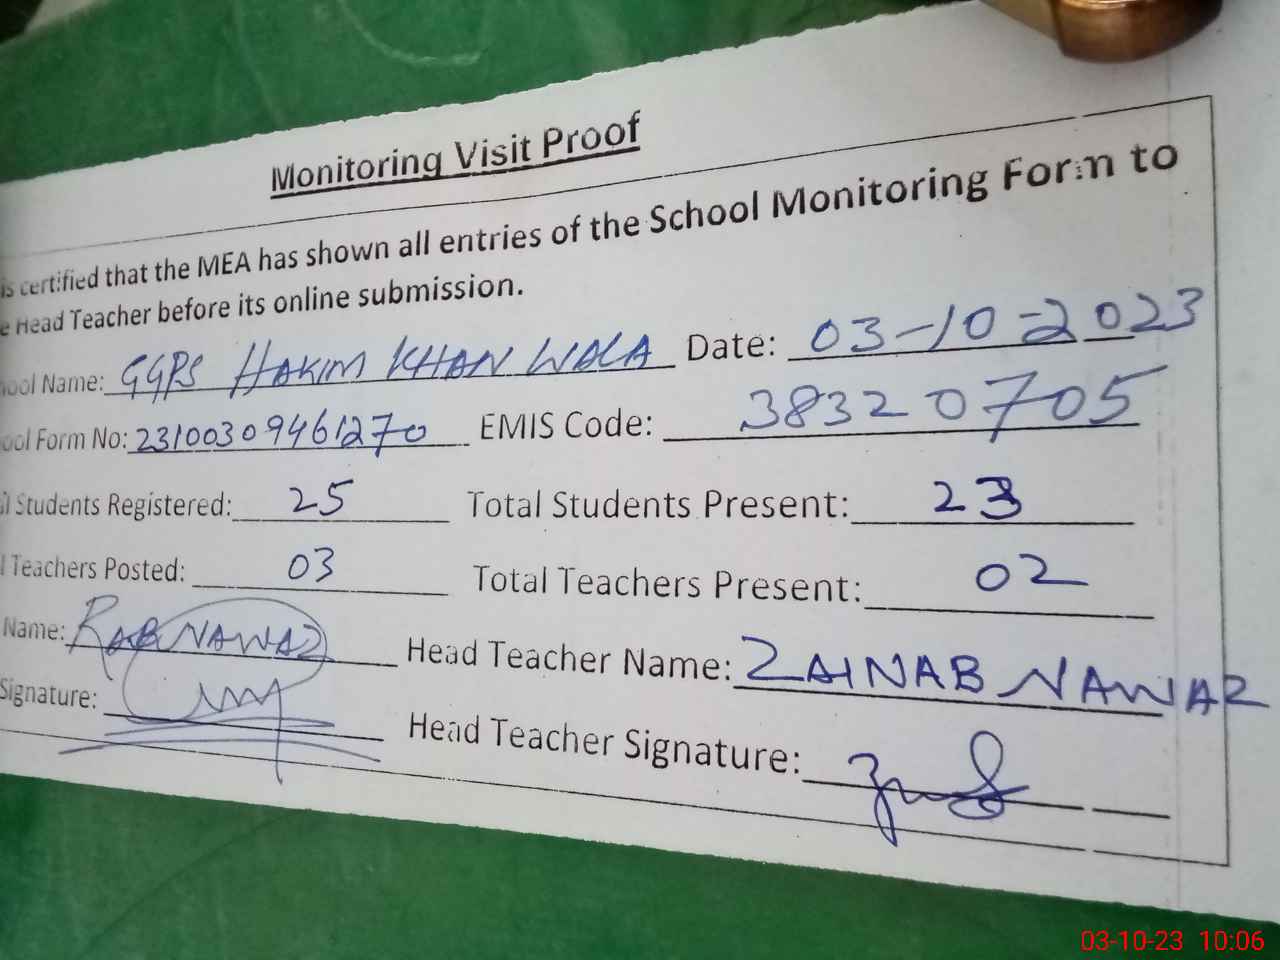 Monitoring Visit Proof
is certified that the MEA has shown all entries of the School Monitoring Form to
e Head Teacher before its online submission.
ool Name: GGPS HAKIM KHAN WALA Date: 03-10-2023
ool Form No: 23100309461270 EMIS Code: 38320705
l Students Registered: 25 Total Students Present: 23
l Teachers Posted: 03 Total Teachers Present: 02
Name: RAB NAWAZ Head Teacher Name: ZAINAB NAWAZ
Signature: Head Teacher Signature:
03-10-23 10:06